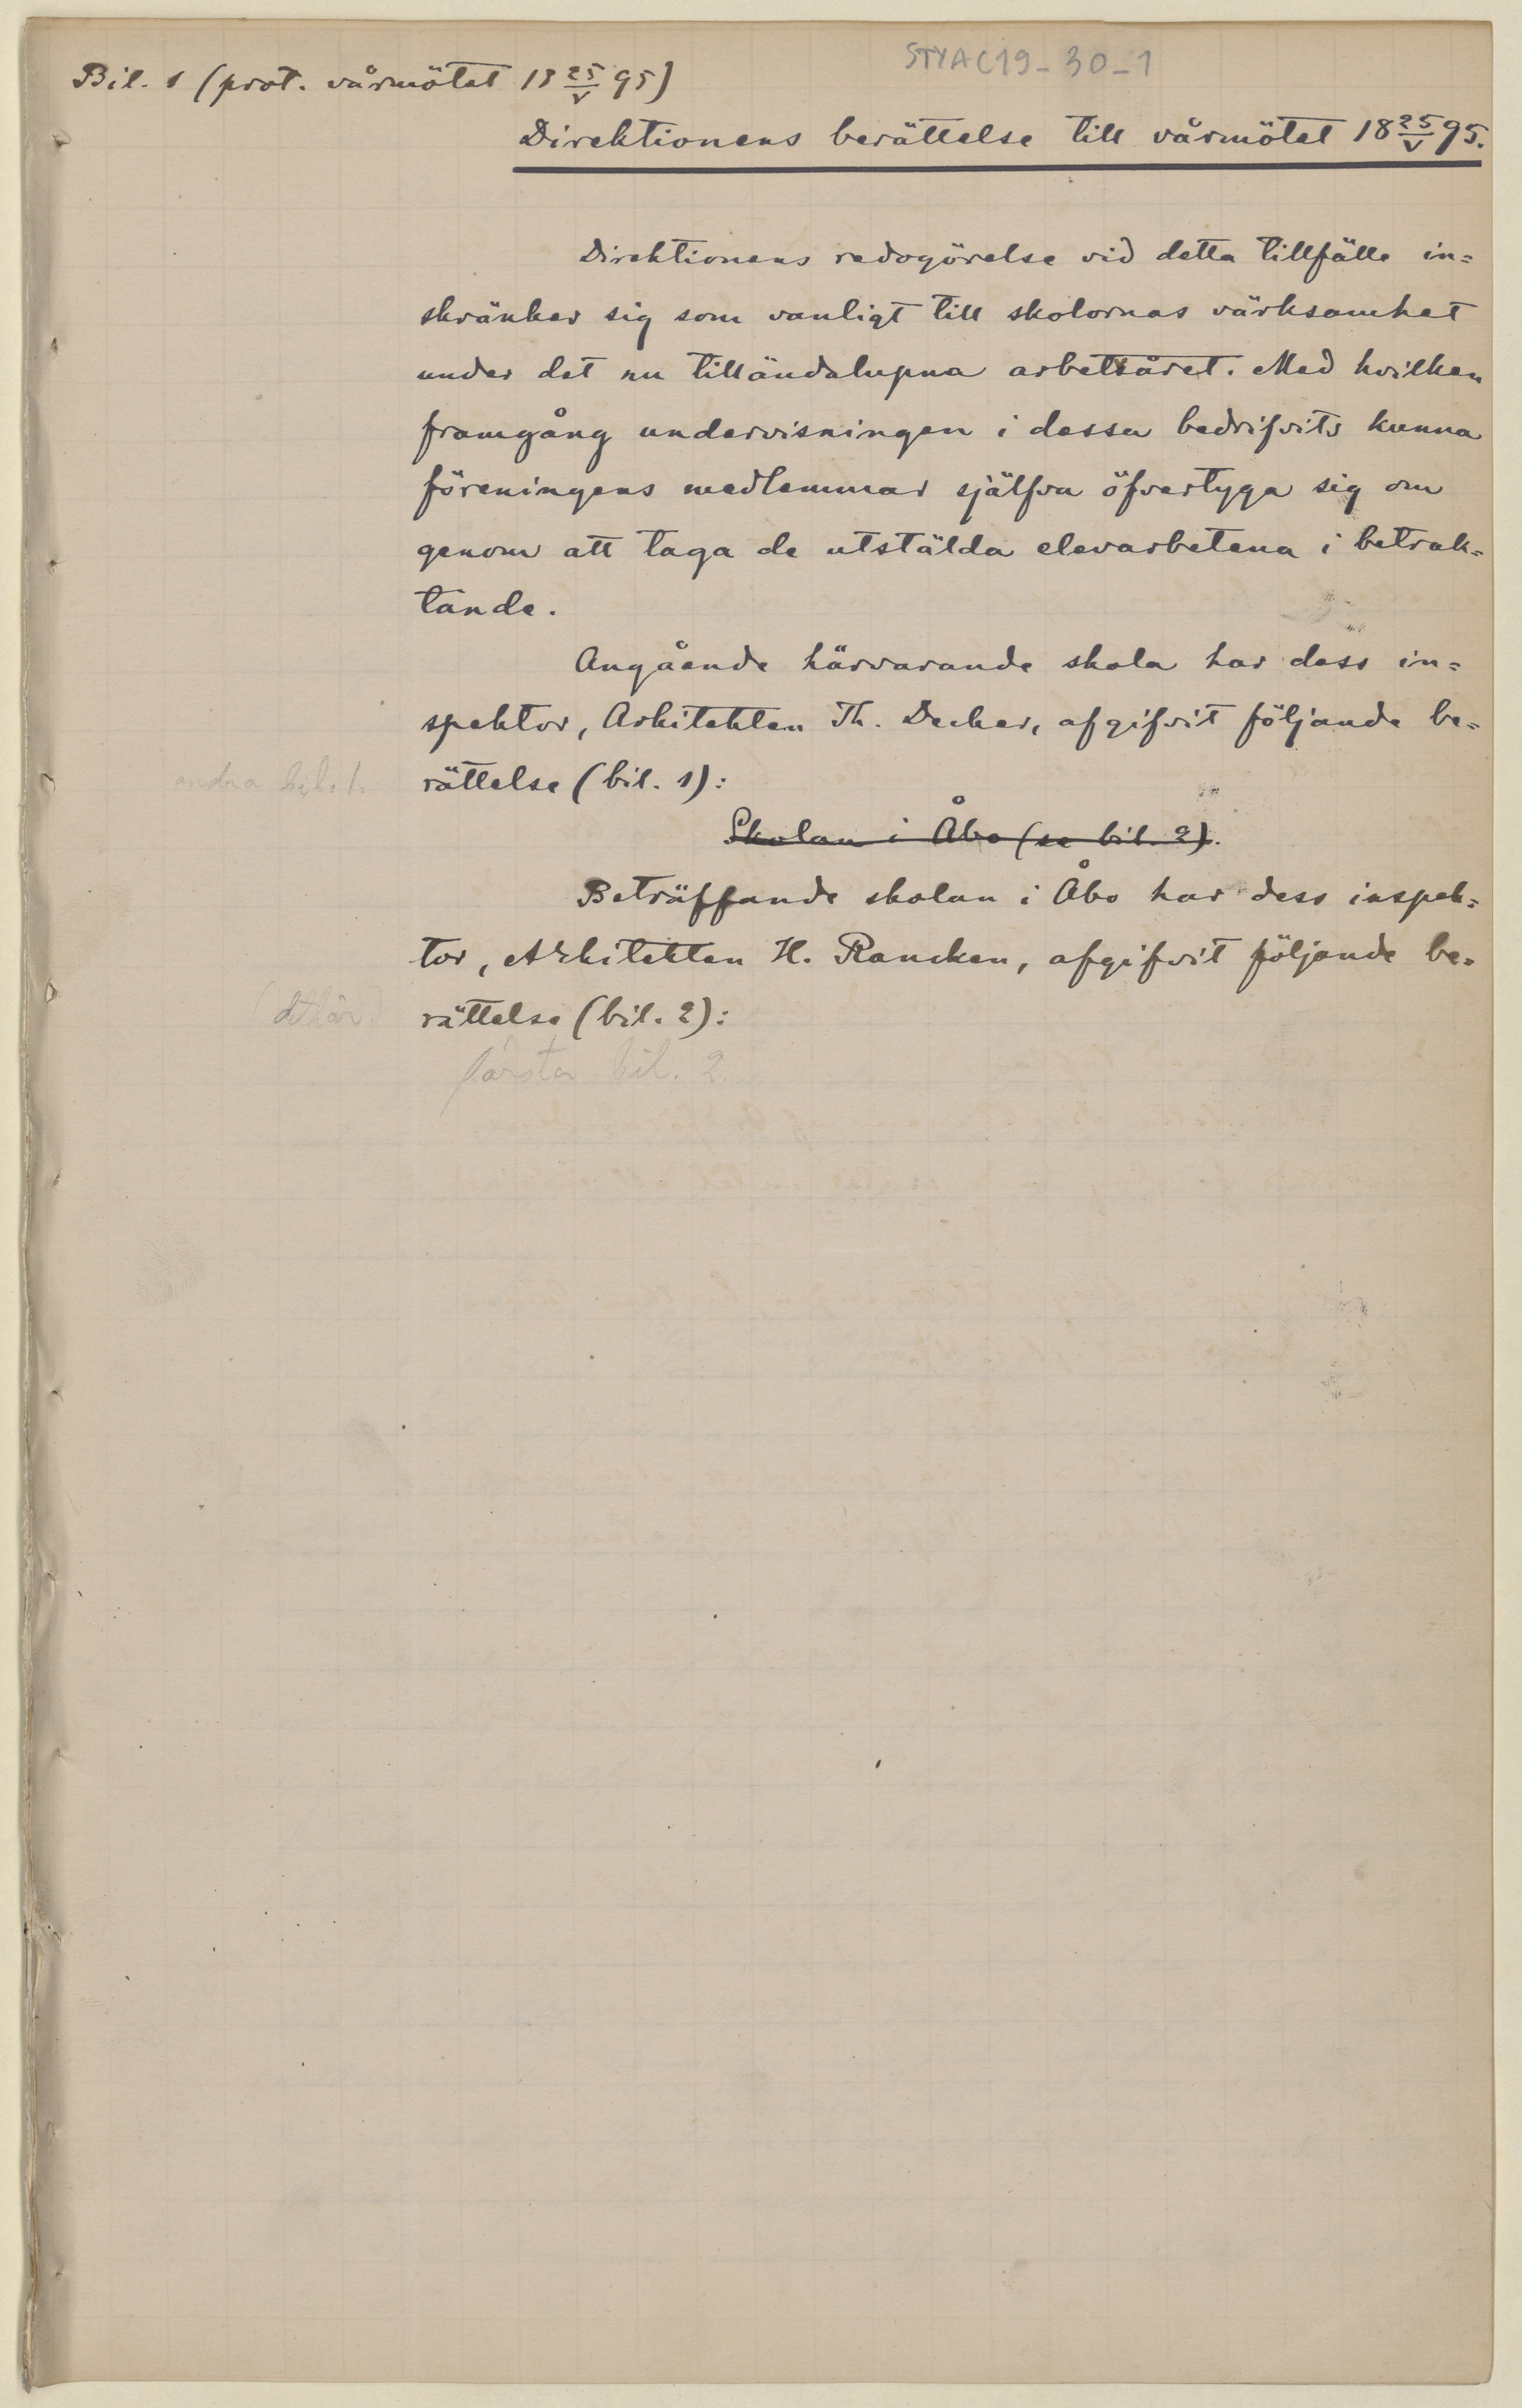 STYAC19-30-1
Bil. 1 (prot. vårmötet 18 25/V 95)
Direktionens berättelse till vårmötet 18 25/V 95.
Direktionens redogörelse vid detta tillfälle in=
skränker sig som vanligt till skolornas värksamhet
under det nu tilländalupna arbetsåret. Med hvilken
framgång undervisningen i dessa bedrifvits kunna
föreningens medlemmar själfva öfvertyga sig om
genom att taga de utstälda elevarbetena i betrak=
tande.
Angående härvarande skola har dess in=
spektor, Arkitekten Th. Decker, afgifvit följande be=
andra bil. 1.
rättelse (bil. 1):
Skolan i Åbo (se bil. 2).
Beträffande skolan i Åbo har dess inspek=
tor, Arkitekten H. Rancken, afgifvit följande be=
rättelse (bil. 2):
första bil. 2.